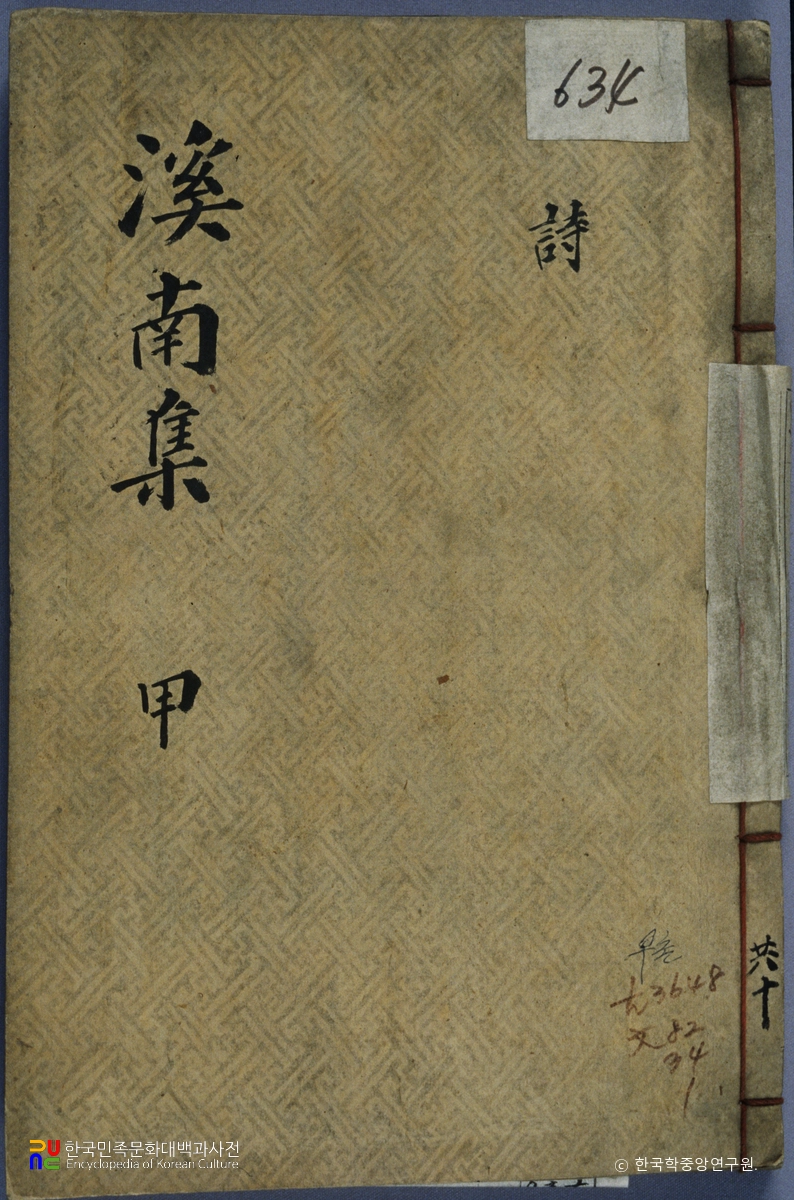 634
詩
溪南集 甲
共十
古3648
文82
34
1
한국민족문화대백과사전
Encyclopedia of Korean Culture
© 한국학중앙연구원.